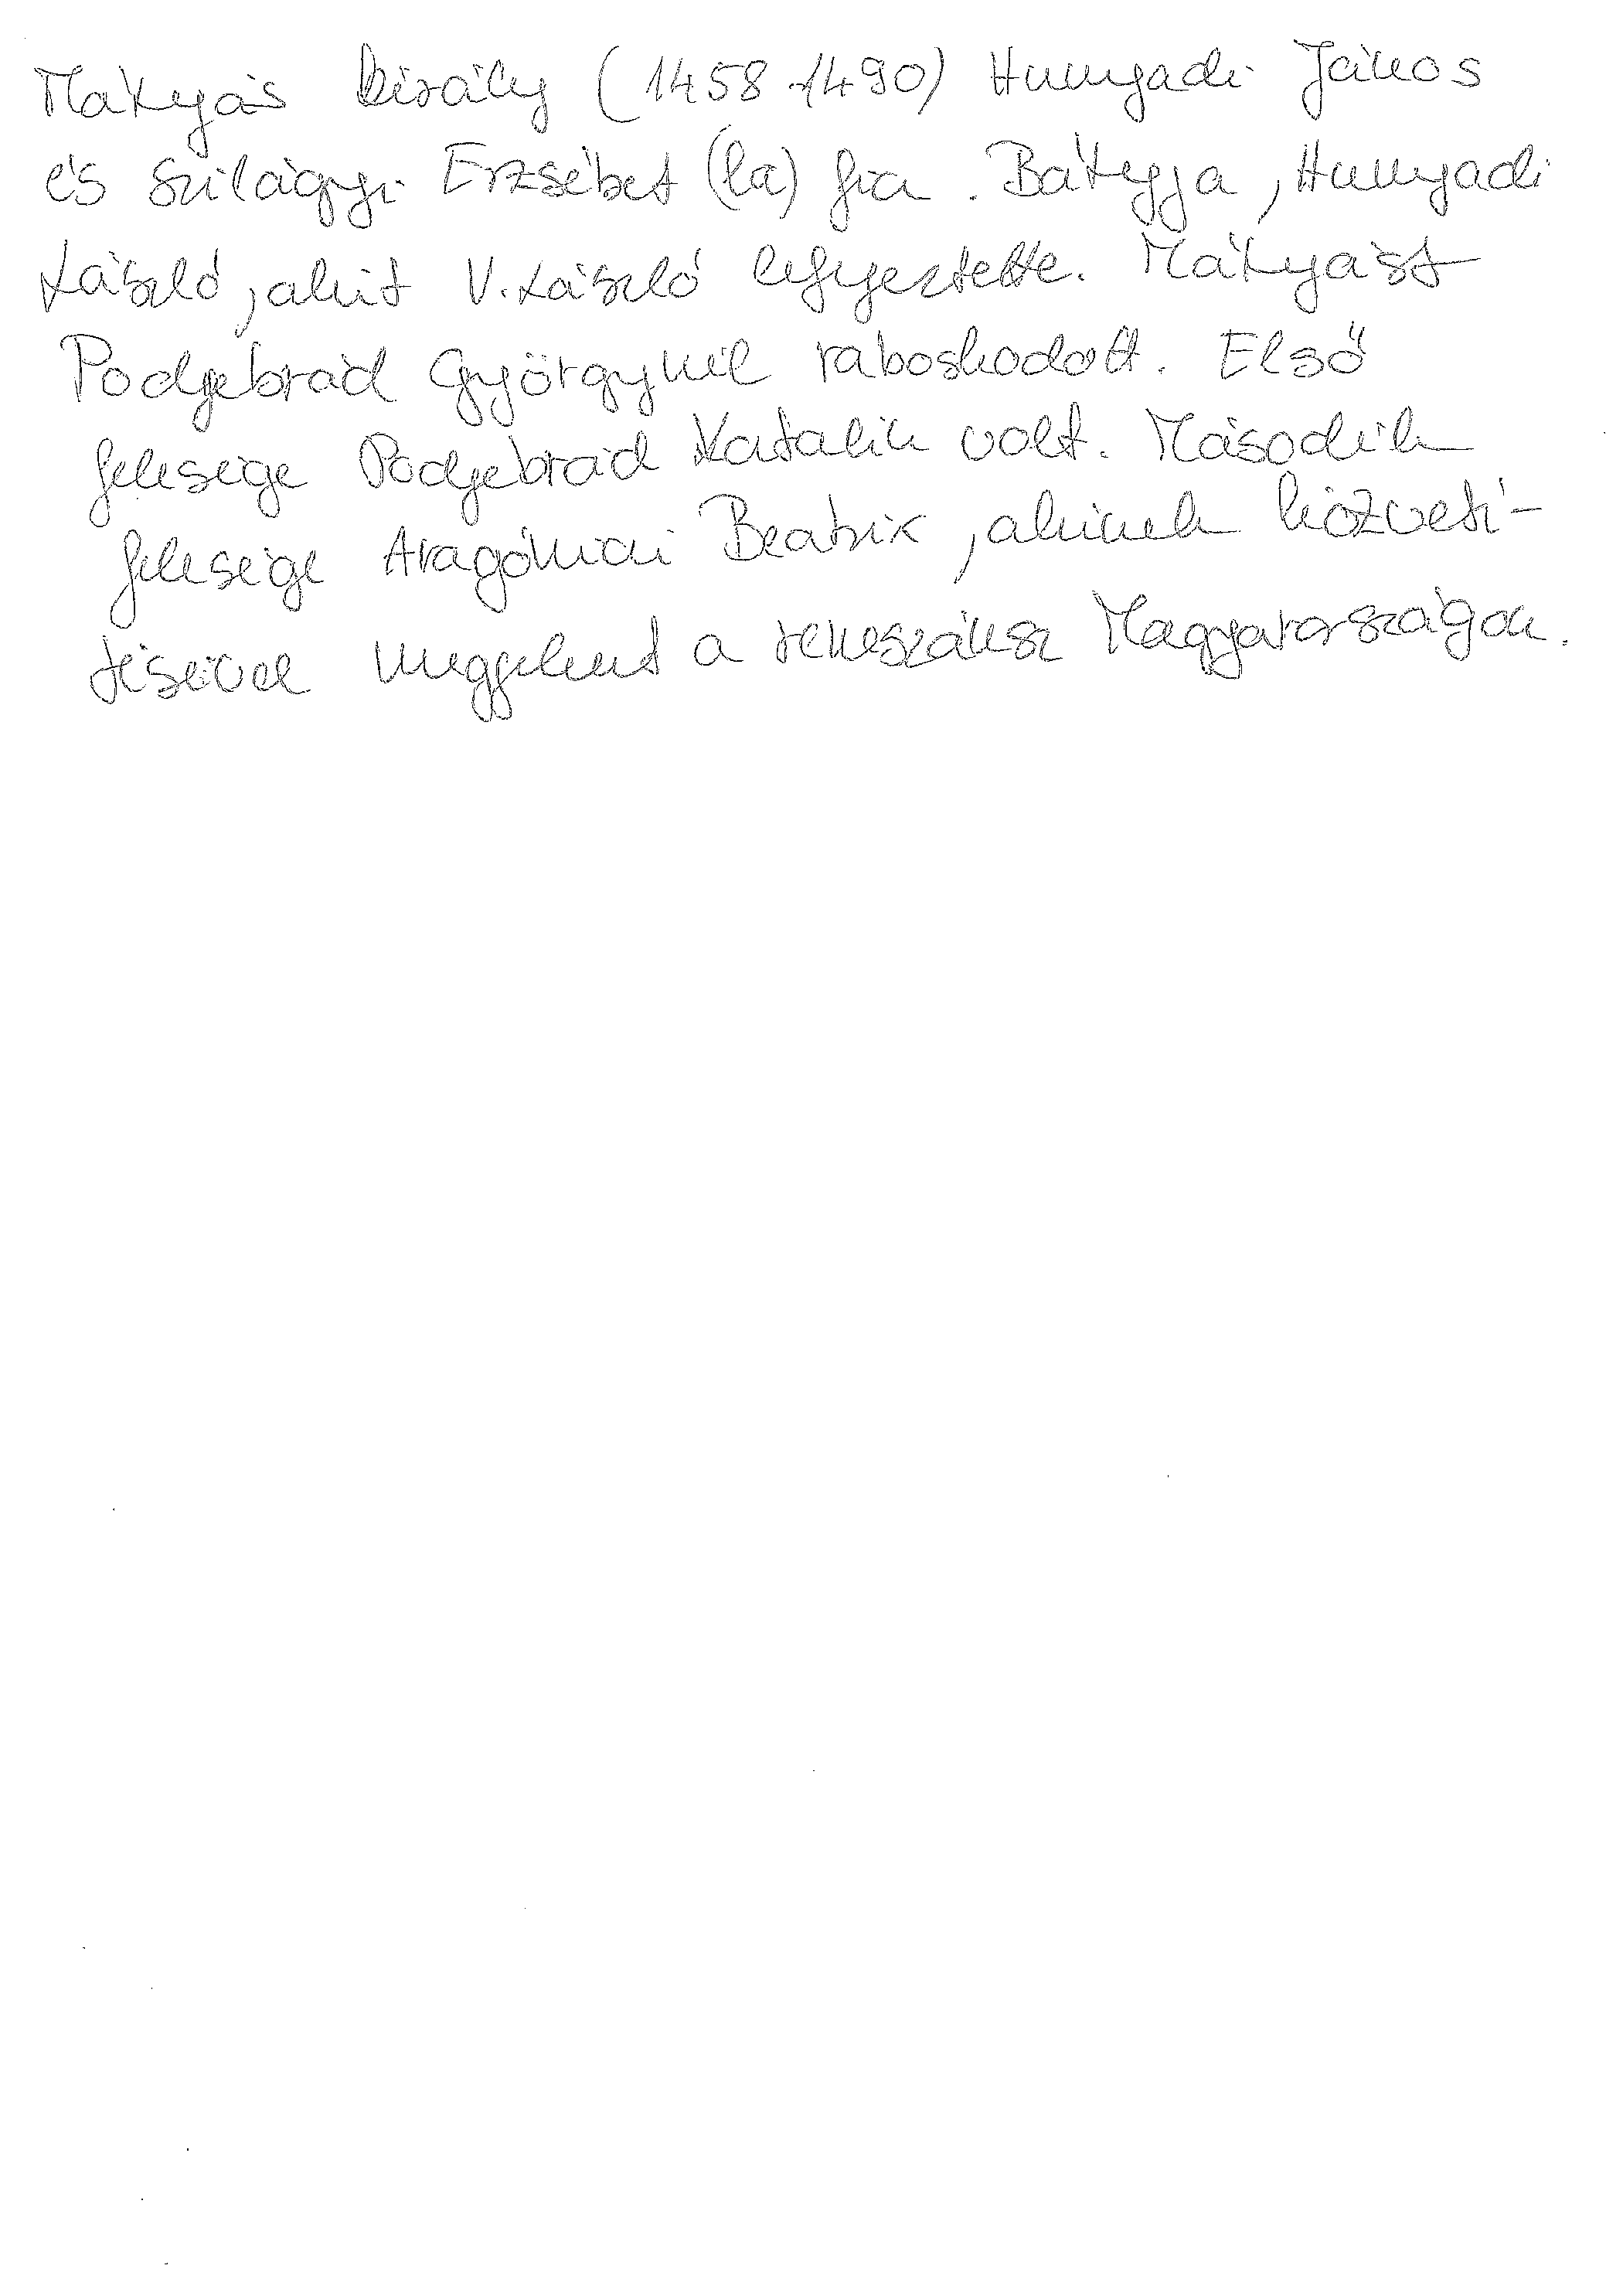 Mátyás király (1458-1490) Hunyadi János
és Szilágyi Erzsébet (la) fia. Bátyja, Hunyadi
László, akit V. László lefejeztette. Mátyást
Podjebrád Györgynél raboskodott. Első
felesége Podjebrád Katalin volt. Második
felesége Aragóniai Beatrix, akinek közvetí-
tésével megjelent a reneszánsz Magyarországon.